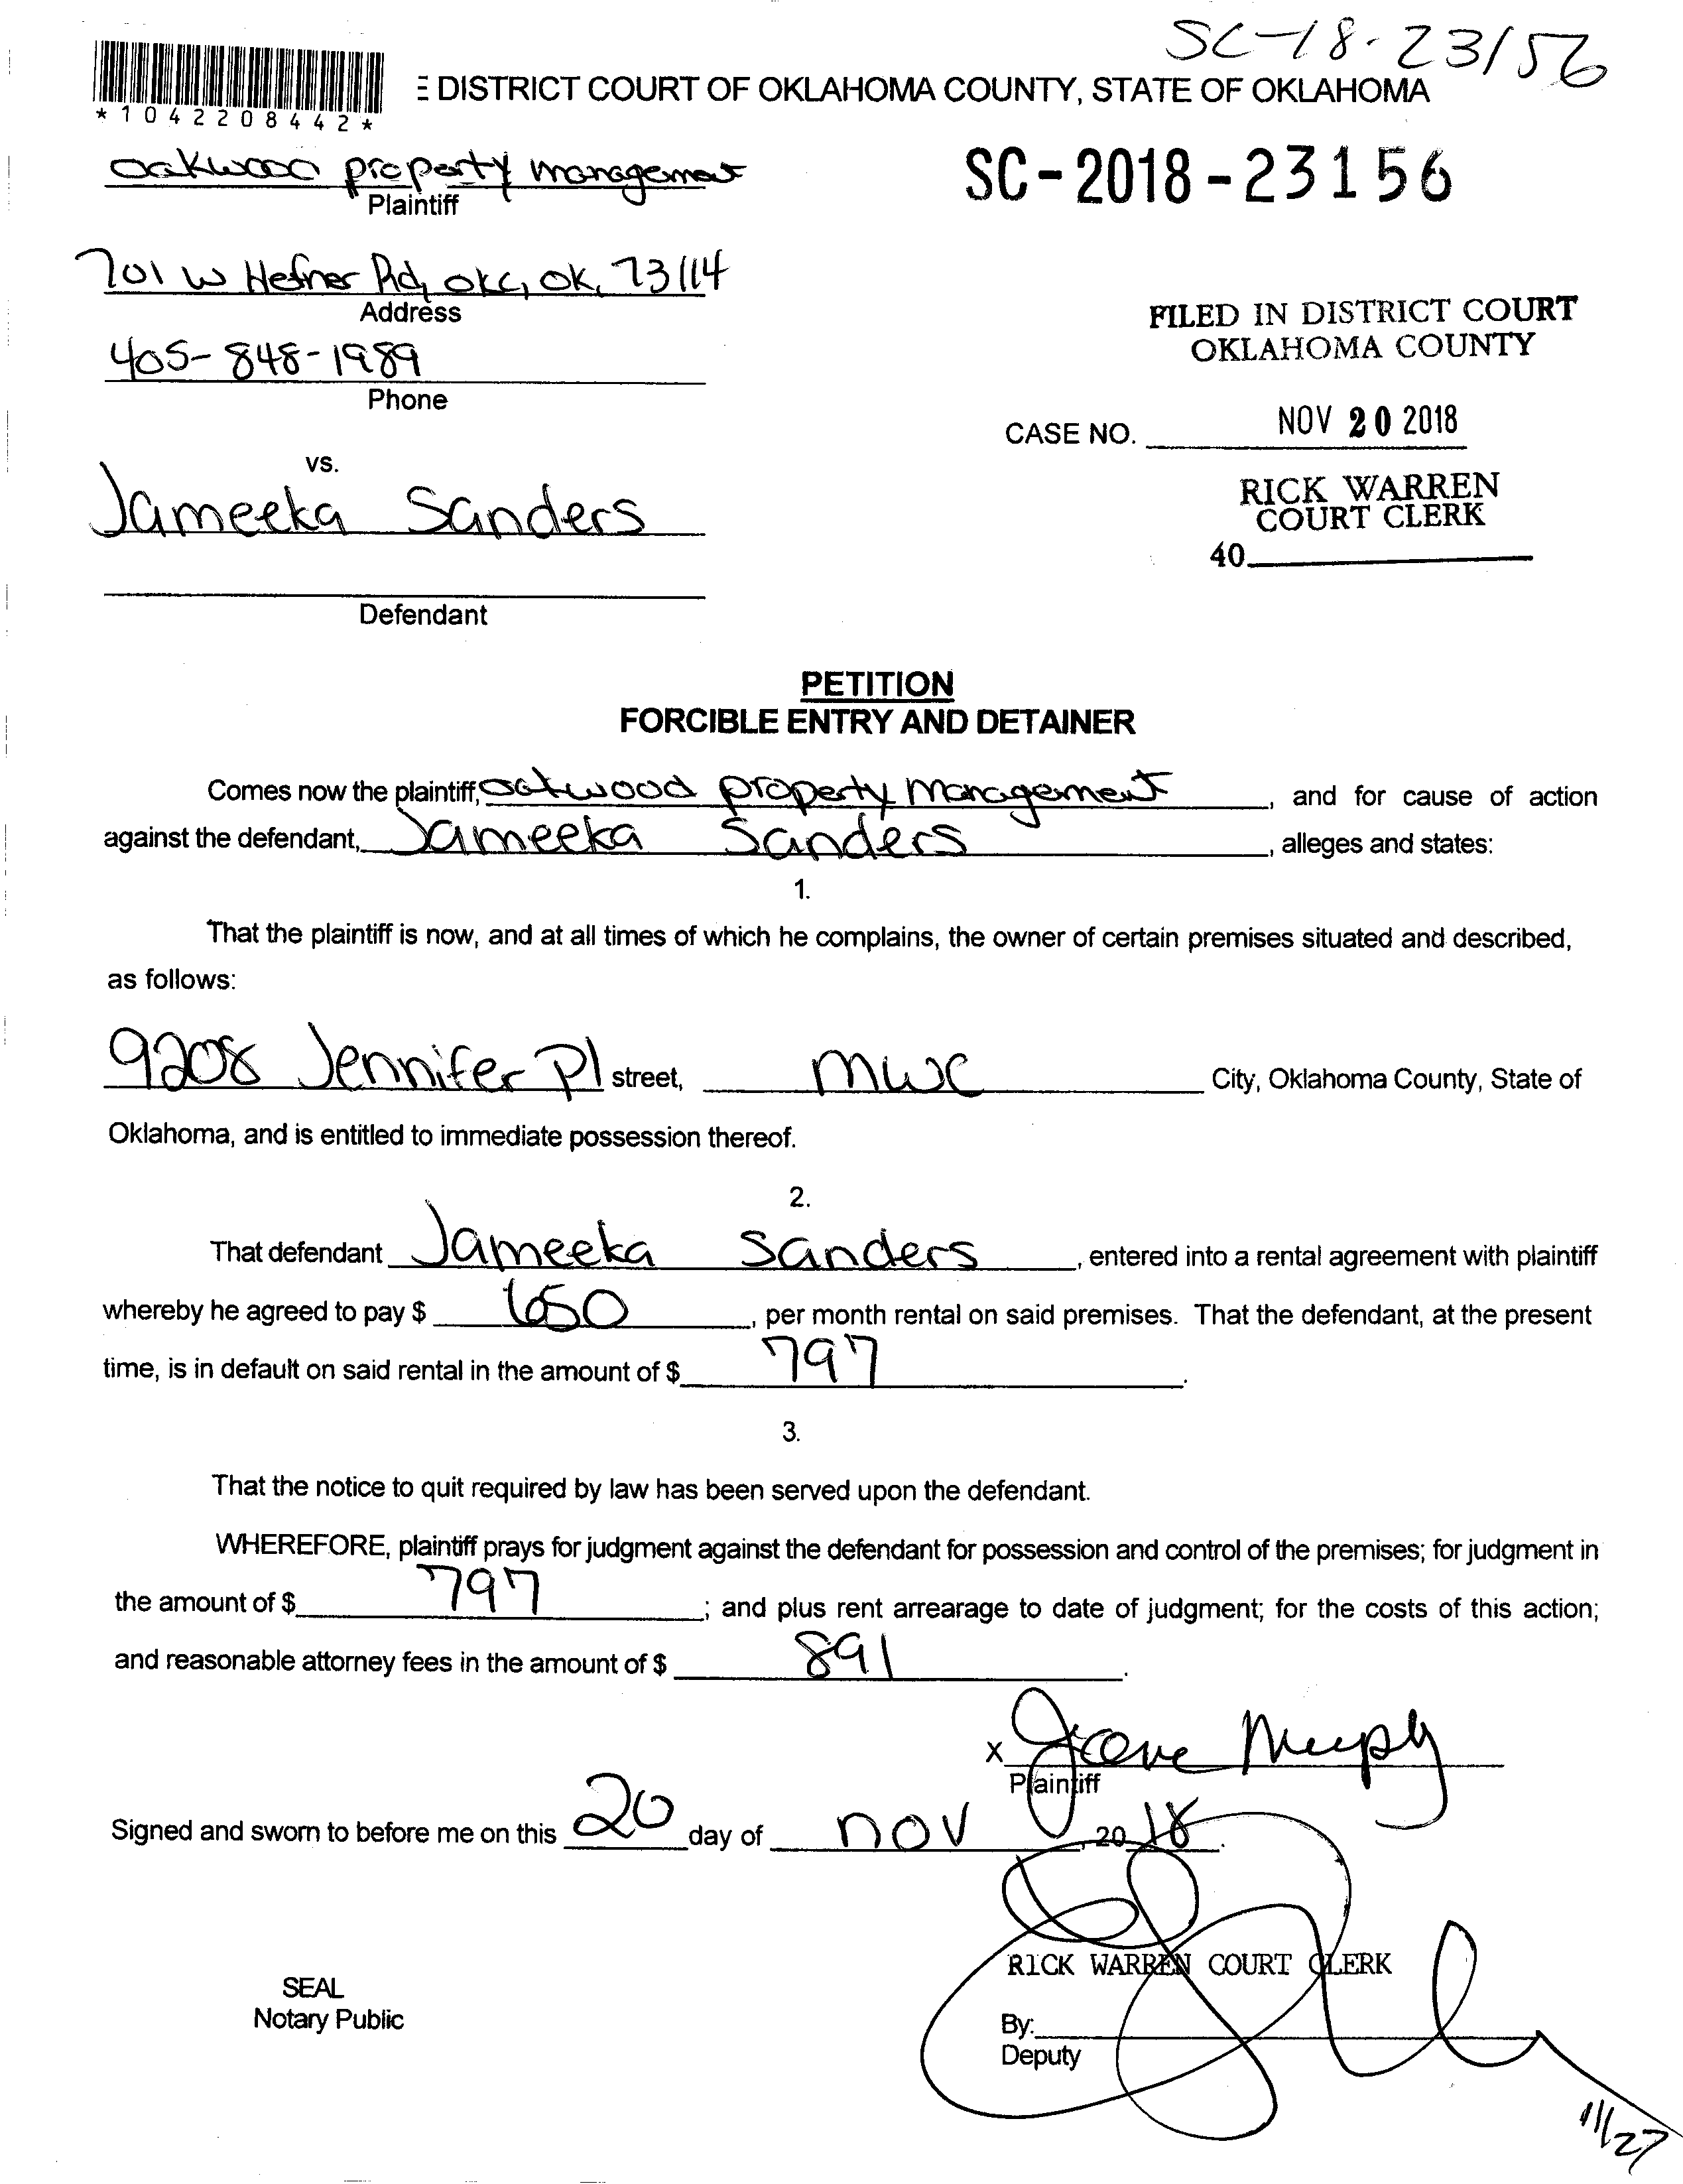 SC-18-23156
E DISTRICT COURT OF OKLAHOMA COUNTY, STATE OF OKLAHOMA
*1042208442*
oakwood property management
Plaintiff
SC-2018-23156
701 W Hefner Rd, OKC, OK, 73114
Address
FILED IN DISTRICT COURT
OKLAHOMA COUNTY
405-848-1989
Phone
CASE NO.
NOV 20 2018
vs.
Jameeka Sanders
RICK WARREN
COURT CLERK
40
Defendant
PETITION
FORCIBLE ENTRY AND DETAINER
Comes now the plaintiff, oakwood property management, and for cause of action
against the defendant, Jameeka Sanders, alleges and states:
1.
That the plaintiff is now, and at all times of which he complains, the owner of certain premises situated and described,
as follows:
9208 Jennifer Pl street, mwc City, Oklahoma County, State of
Oklahoma, and is entitled to immediate possession thereof.
2.
That defendant Jameeka Sanders, entered into a rental agreement with plaintiff
whereby he agreed to pay $ 650, per month rental on said premises. That the defendant, at the present
time, is in default on said rental in the amount of $ 797.
3.
That the notice to quit required by law has been served upon the defendant.
WHEREFORE, plaintiff prays for judgment against the defendant for possession and control of the premises; for judgment in
the amount of $ 797; and plus rent arrearage to date of judgment; for the costs of this action;
and reasonable attorney fees in the amount of $ 891.
x
Plaintiff
Signed and sworn to before me on this 20 day of nov, 2018.
RICK WARREN COURT CLERK
SEAL
Notary Public
By:
Deputy
11/27